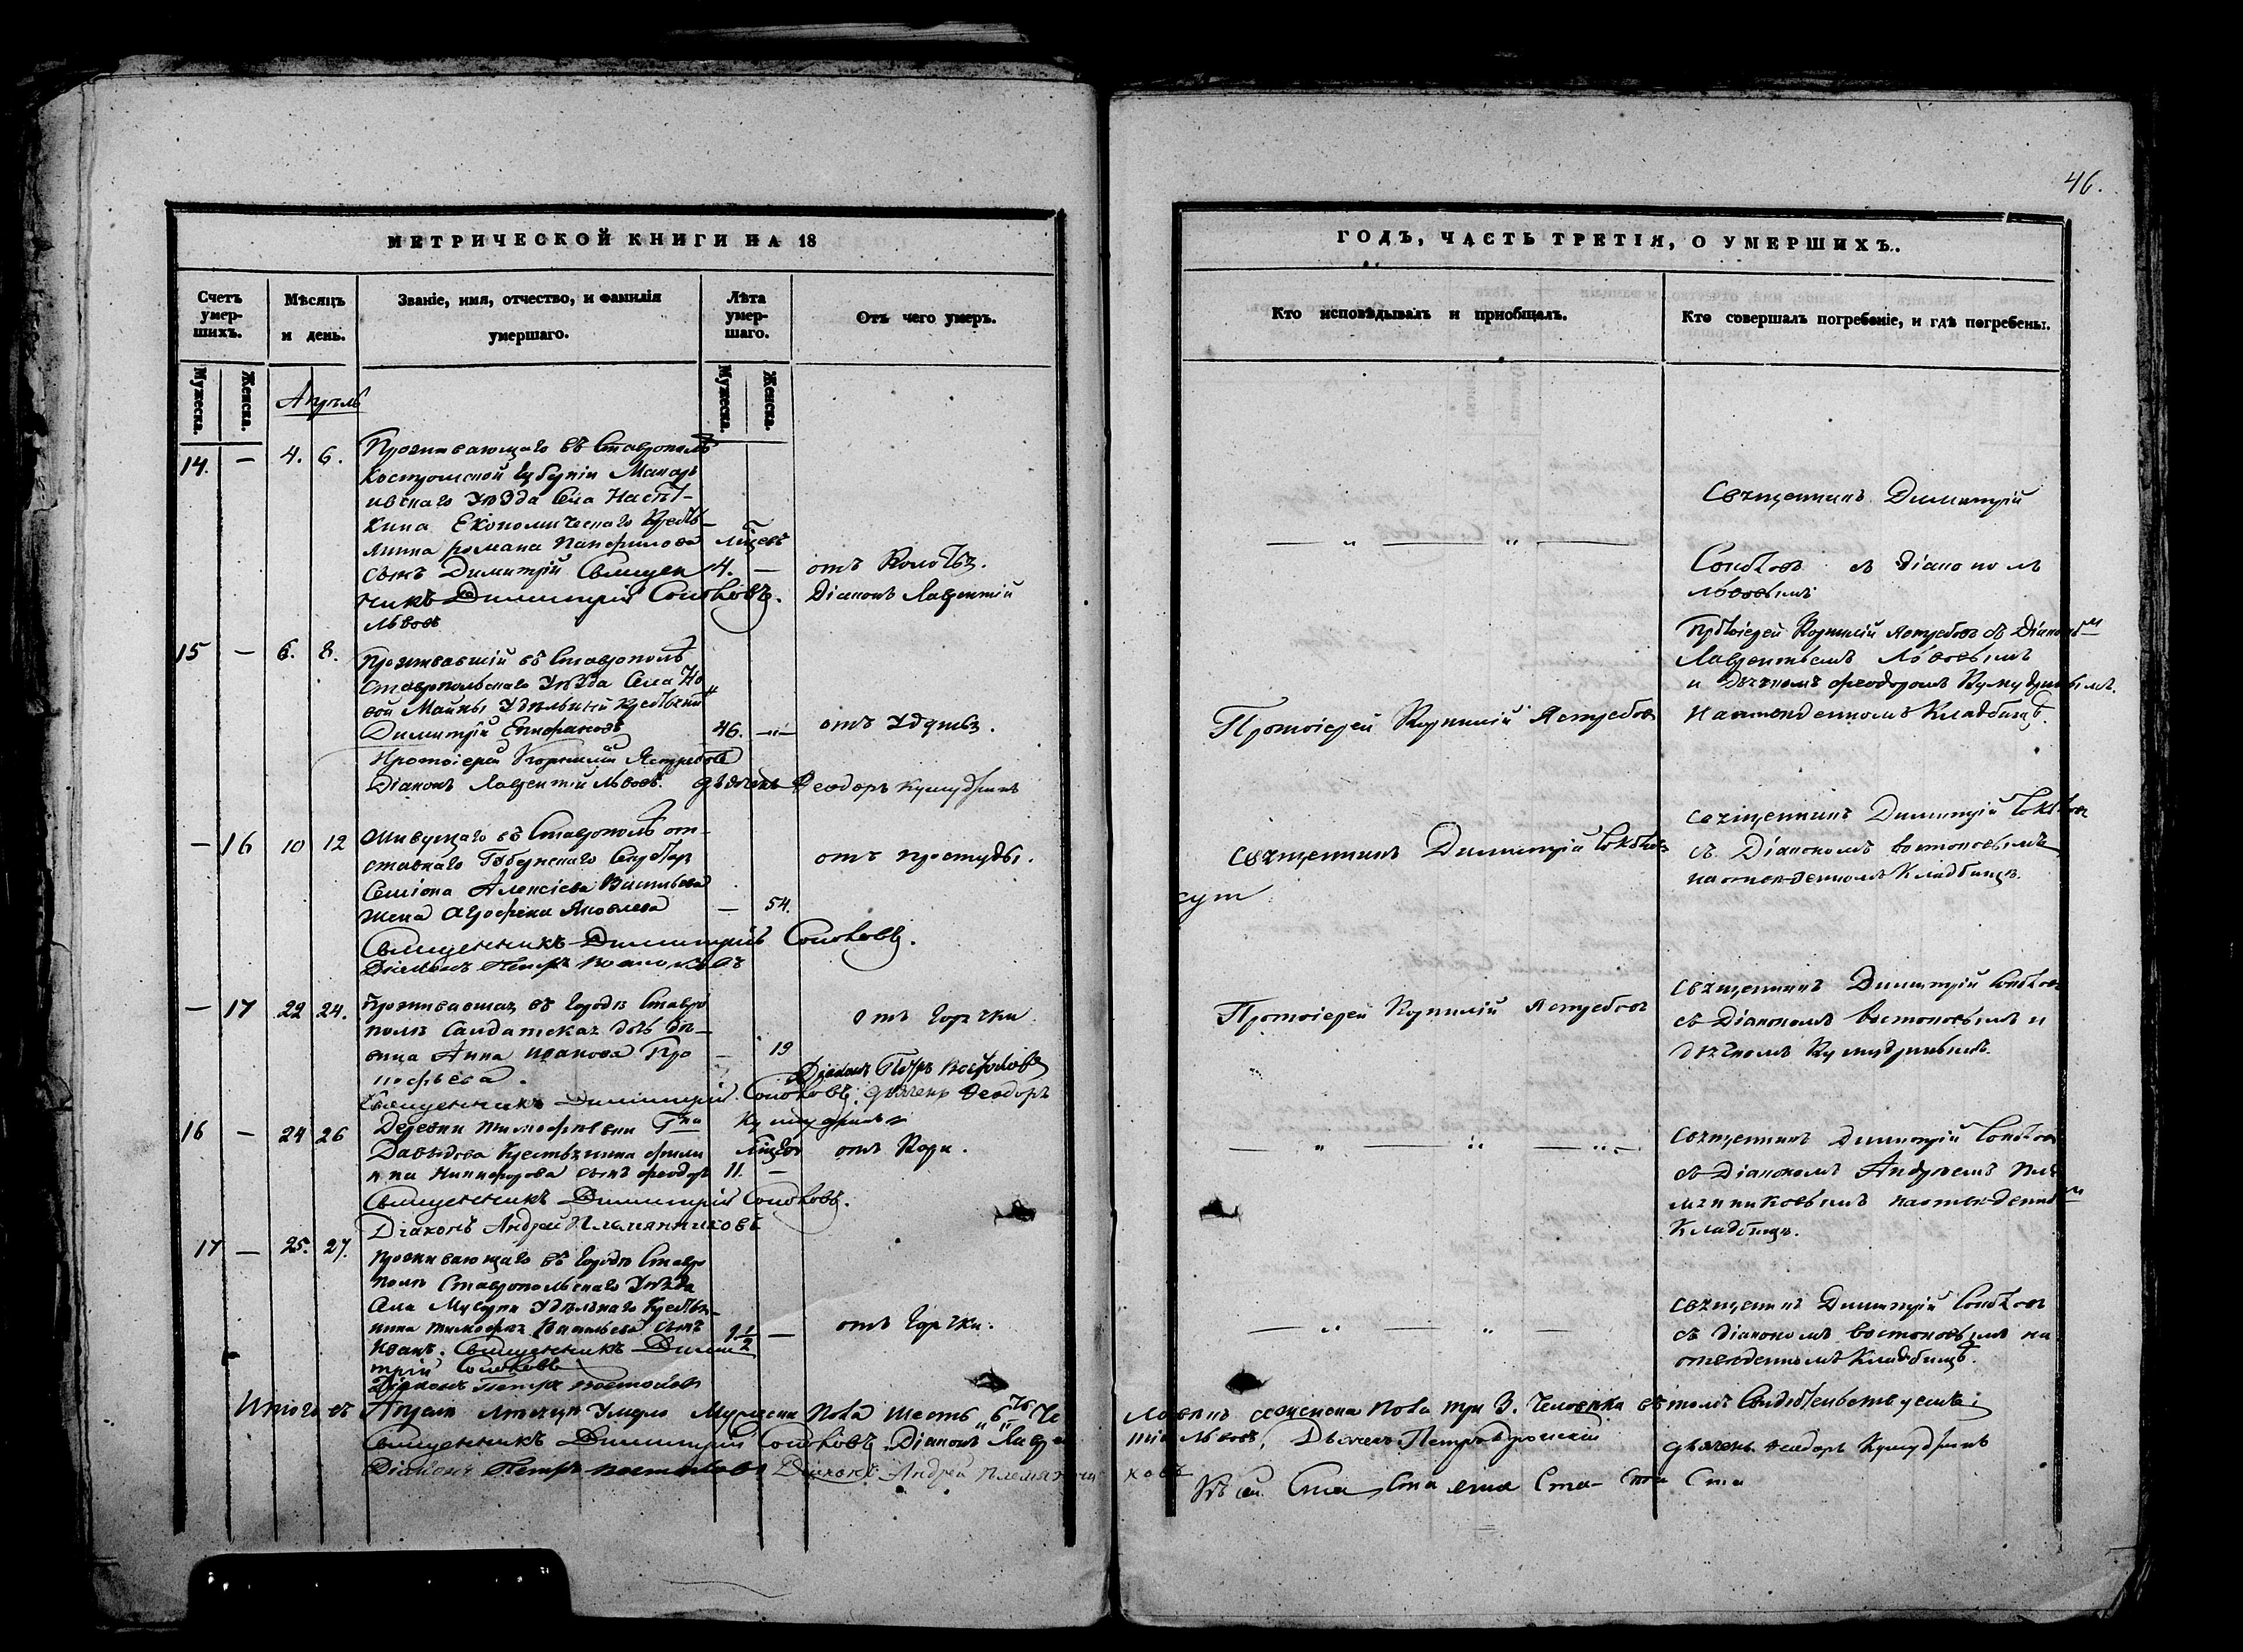 46.
МЕТРИЧЕСКОЙ КНИГИ НА 18
ГОДЪ, ЧАСТЬ ТРЕТІЯ, О УМЕРШИХЪ.
Счетъ умер-шихъ.
Мѣсяцъ и день.
Званіе, имя, отчество, и фамилія умершаго.
Лѣта умер-шаго.
Отъ чего умеръ.
Кто исповѣдывалъ и пріобщалъ.
Кто совершалъ погребеніе, и гдѣ погребены.
Мужеска.
Женска.
Мужеска.
Женска.
Апрель
14. — 4. 6.
Проживающаго въ Ставрополѣ
Костромской Губерніи Макарь
ивскаго Уѣзда Села
кина Економическаго Крестья
нина романа Панфилова
сынъ Димитрій
4. —
Священ
никъ Димитрій Соколовъ.
Діаконъ Лаврентій
Львовъ
Священникъ Димитрій
Соколовъ съ Діакономъ
Львовымъ
15 — 6. 8.
Проживавшій въ Ставрополѣ
Ставропольскаго Уѣзда Села Но
вой Майны Удѣльный Крестьянинъ
Димитрій
46.
Протоіерей Корнилій Ястребовъ
Діаконъ Лаврентій Львовъ. дьячекъ Феодоръ Кумудринъ
Протоіерей Корнилій Ястребовъ
Протоіерей Корнилій Ястребовъ съ Діакономъ
Лаврентьемъ Львовымъ
и Дьячкомъ Феодоромъ Кумудринымъ.
на отведенномъ Кладбищѣ.
— 16 10 12
Живущаго въ Ставрополѣ от-
ставнаго Губернскаго Секретар
Семіона Алексіева Васильева
жена Агрофена Яковлева
— 54.
отъ простуды.
Священникъ Димитрій Соколовъ.
Діаконъ Петръ Востоковъ
Священникъ Димитрій Соколовъ
Священникъ Димитрій Соколовъ
съ Діакономъ Востоковымъ
на отведенномъ Кладбищѣ.
— 17 22 24.
Проживавшая въ Городѣ Ставро
полѣ Салдатская дочь дѣ—
вица Анна Иванова Про
кофьева.
— 19
отъ Горячки
Діаконъ Петръ Востоковъ
Священникъ Димитрій Соколовъ. дьячекъ Феодоръ
Кумудринъ
Протоіерей Корнилій Ястребовъ
Священникъ Димитрій Соколовъ
съ Діакономъ Востоковымъ и
дьячкомъ Кумудринымъ.
16 — 24 26
Деревни Тимофѣевки Гна
Давыдова Крестьянина Фили
ппа Никифорова сынъ Феодоръ
11. —
отъ Кори.
Священникъ Димитрій Соколовъ.
Діаконъ Андрей Племянниковъ
Священникъ Димитрій Соколовъ
съ Діакономъ Андреемъ Пле
мянниковымъ на отведенномъ
Кладбищѣ.
17 — 25. 27.
Проживающаго въ Городѣ Ставро
полѣ Ставропольскаго Уѣзда
Села Мусорки Удѣльнаго Крестья—
нина Тимофея Васильева сынъ
Иванъ.
1/2 —
отъ Горячки.
Священникъ Дими
трій Соколовъ
Діаконъ Петръ Востоковъ
Священникъ Димитрій Соколовъ
съ Діакономъ Востоковымъ на
отведенномъ Кладбищѣ.
Итого въ Апрелѣ мѣсяцѣ Умерло Мужеска Пола Шесть 6 Че
ловѣкъ а женска пола три 3. Человѣка въ томъ Свидѣтельствуемъ:
Священникъ Димитрій Соколовъ. Діаконъ Лаврен
тій Львовъ, Дьячекъ Петръ
дьячекъ Феодоръ Кумудринъ
Діаконъ Петръ Востоковъ Діаконъ Андрей Племянни
ковъ